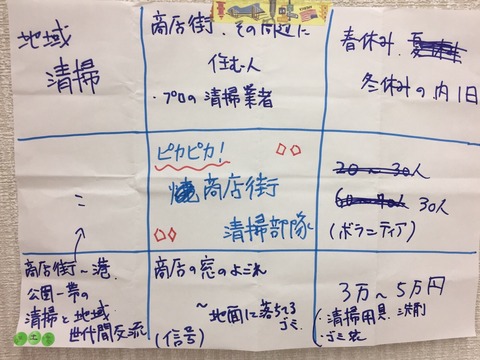 地域
清掃
商店街、その周辺に
住む人
・プロの清掃業者
春休み、
冬休みの内1日
ピカピカ!
商店街
清掃部隊
20〜30人
30人
(ボランティア)
商店街〜港
公園一帯の
清掃と地域
世代間交流
商店の窓のよごれ
〜地面に落ちてる
ゴミ
(信号)
3万〜5万円
・清掃用具、洗剤
・ゴミ袋